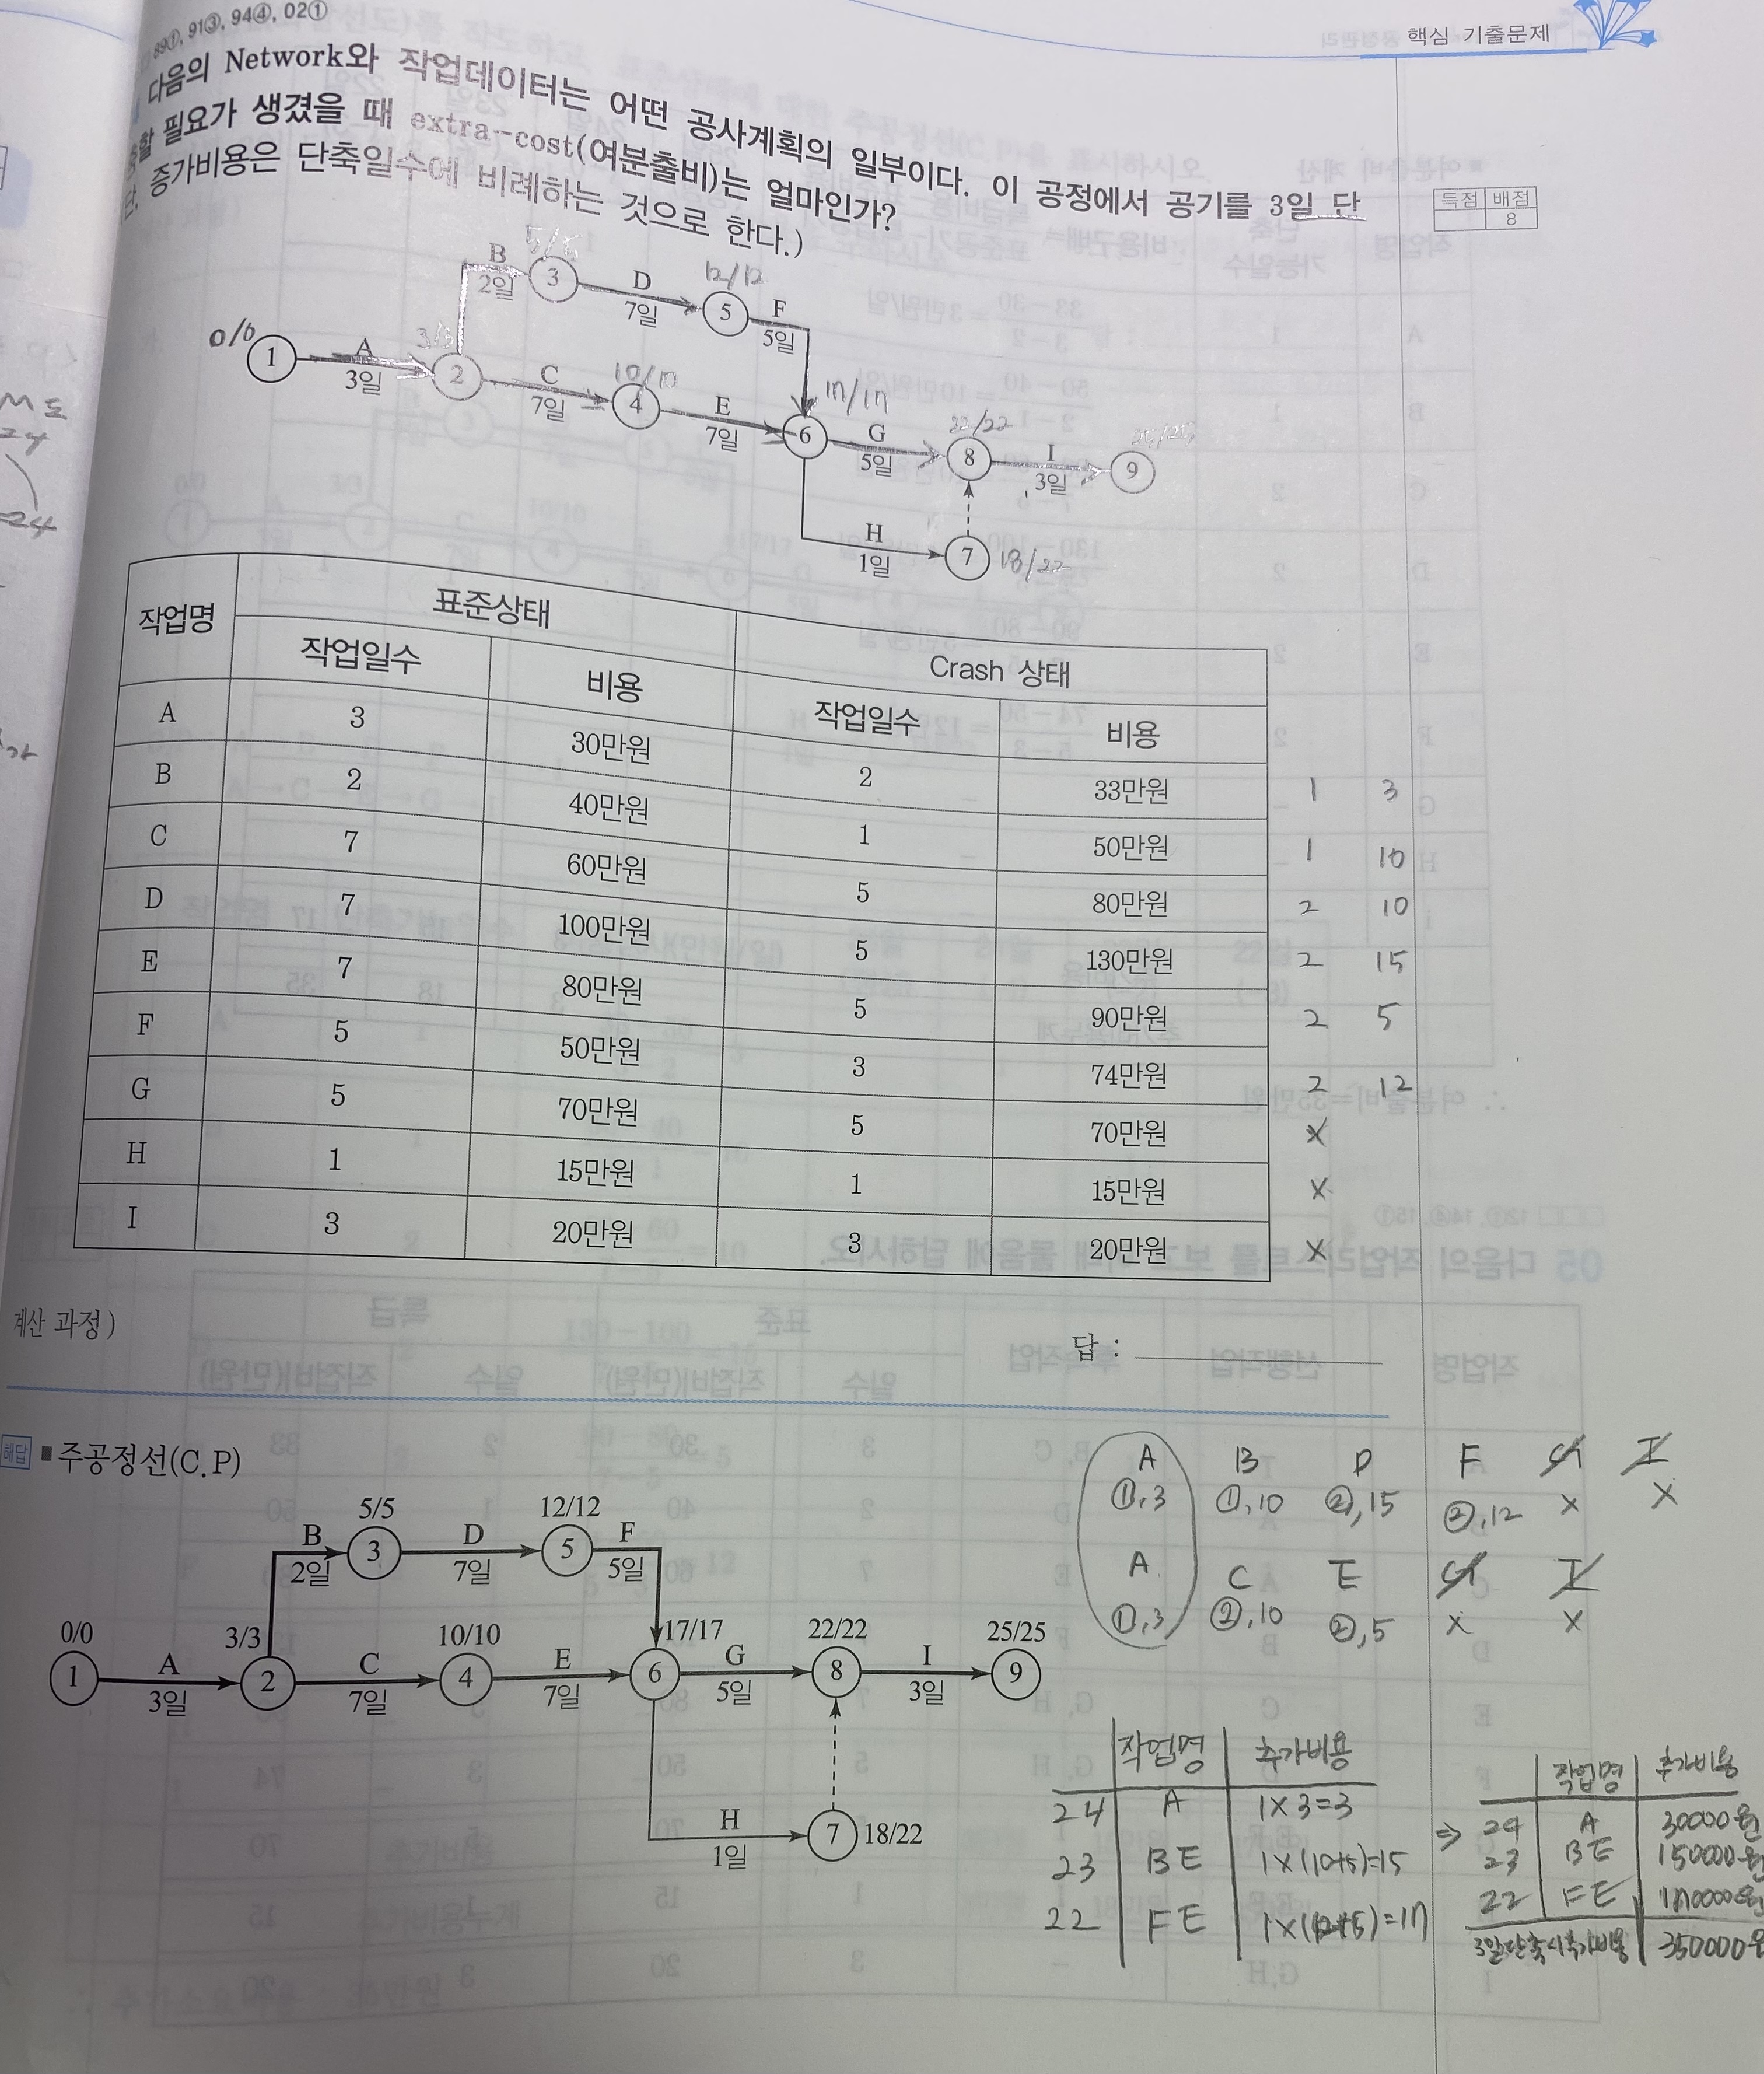 89①, 91③, 94④, 02①
핵심 기출문제
다음의 Network와 작업데이터는 어떤 공사계획의 일부이다. 이 공정에서 공기를 3일 단
축할 필요가 생겼을 때 extra-cost(여분출비)는 얼마인가?
단, 증가비용은 단축일수에 비례하는 것으로 한다.)
득점 배점
8
0/0
1
A
3일
3/3
2
B
2일
5/5
3
D
7일
12/12
5
F
5일
C
7일
10/10
4
E
7일
17/17
6
G
5일
22/22
8
I
3일
25/25
9
H
1일
7
18/22
작업명 표준상태 Crash 상태
작업일수 비용 작업일수 비용
A 3 30만원 2 33만원 1 3
B 2 40만원 1 50만원 1 10
C 7 60만원 5 80만원 2 10
D 7 100만원 5 130만원 2 15
E 7 80만원 5 90만원 2 5
F 5 50만원 3 74만원 2 12
G 5 70만원 5 70만원 X
H 1 15만원 1 15만원 X
I 3 20만원 3 20만원 X
계산 과정)
답 :
해답 ■ 주공정선(C.P)
0/0
1
A
3일
3/3
2
B
2일
5/5
3
D
7일
12/12
5
F
5일
C
7일
10/10
4
E
7일
17/17
6
G
5일
22/22
8
I
3일
25/25
9
H
1일
7
18/22
A B D F G I
①,3 ①,10 ②,15 ②,12 X X
A C E G I
①,3 ②,10 ②,5 X X
작업명 추가비용
24 A 1×3=3
23 BE 1×(10+5)=15
22 FE 1×(12+5)=17
⇒
작업명 추가비용
24 A 30000원
23 BE 150000원
22 FE 170000원
3일단축시추가비용 350000원